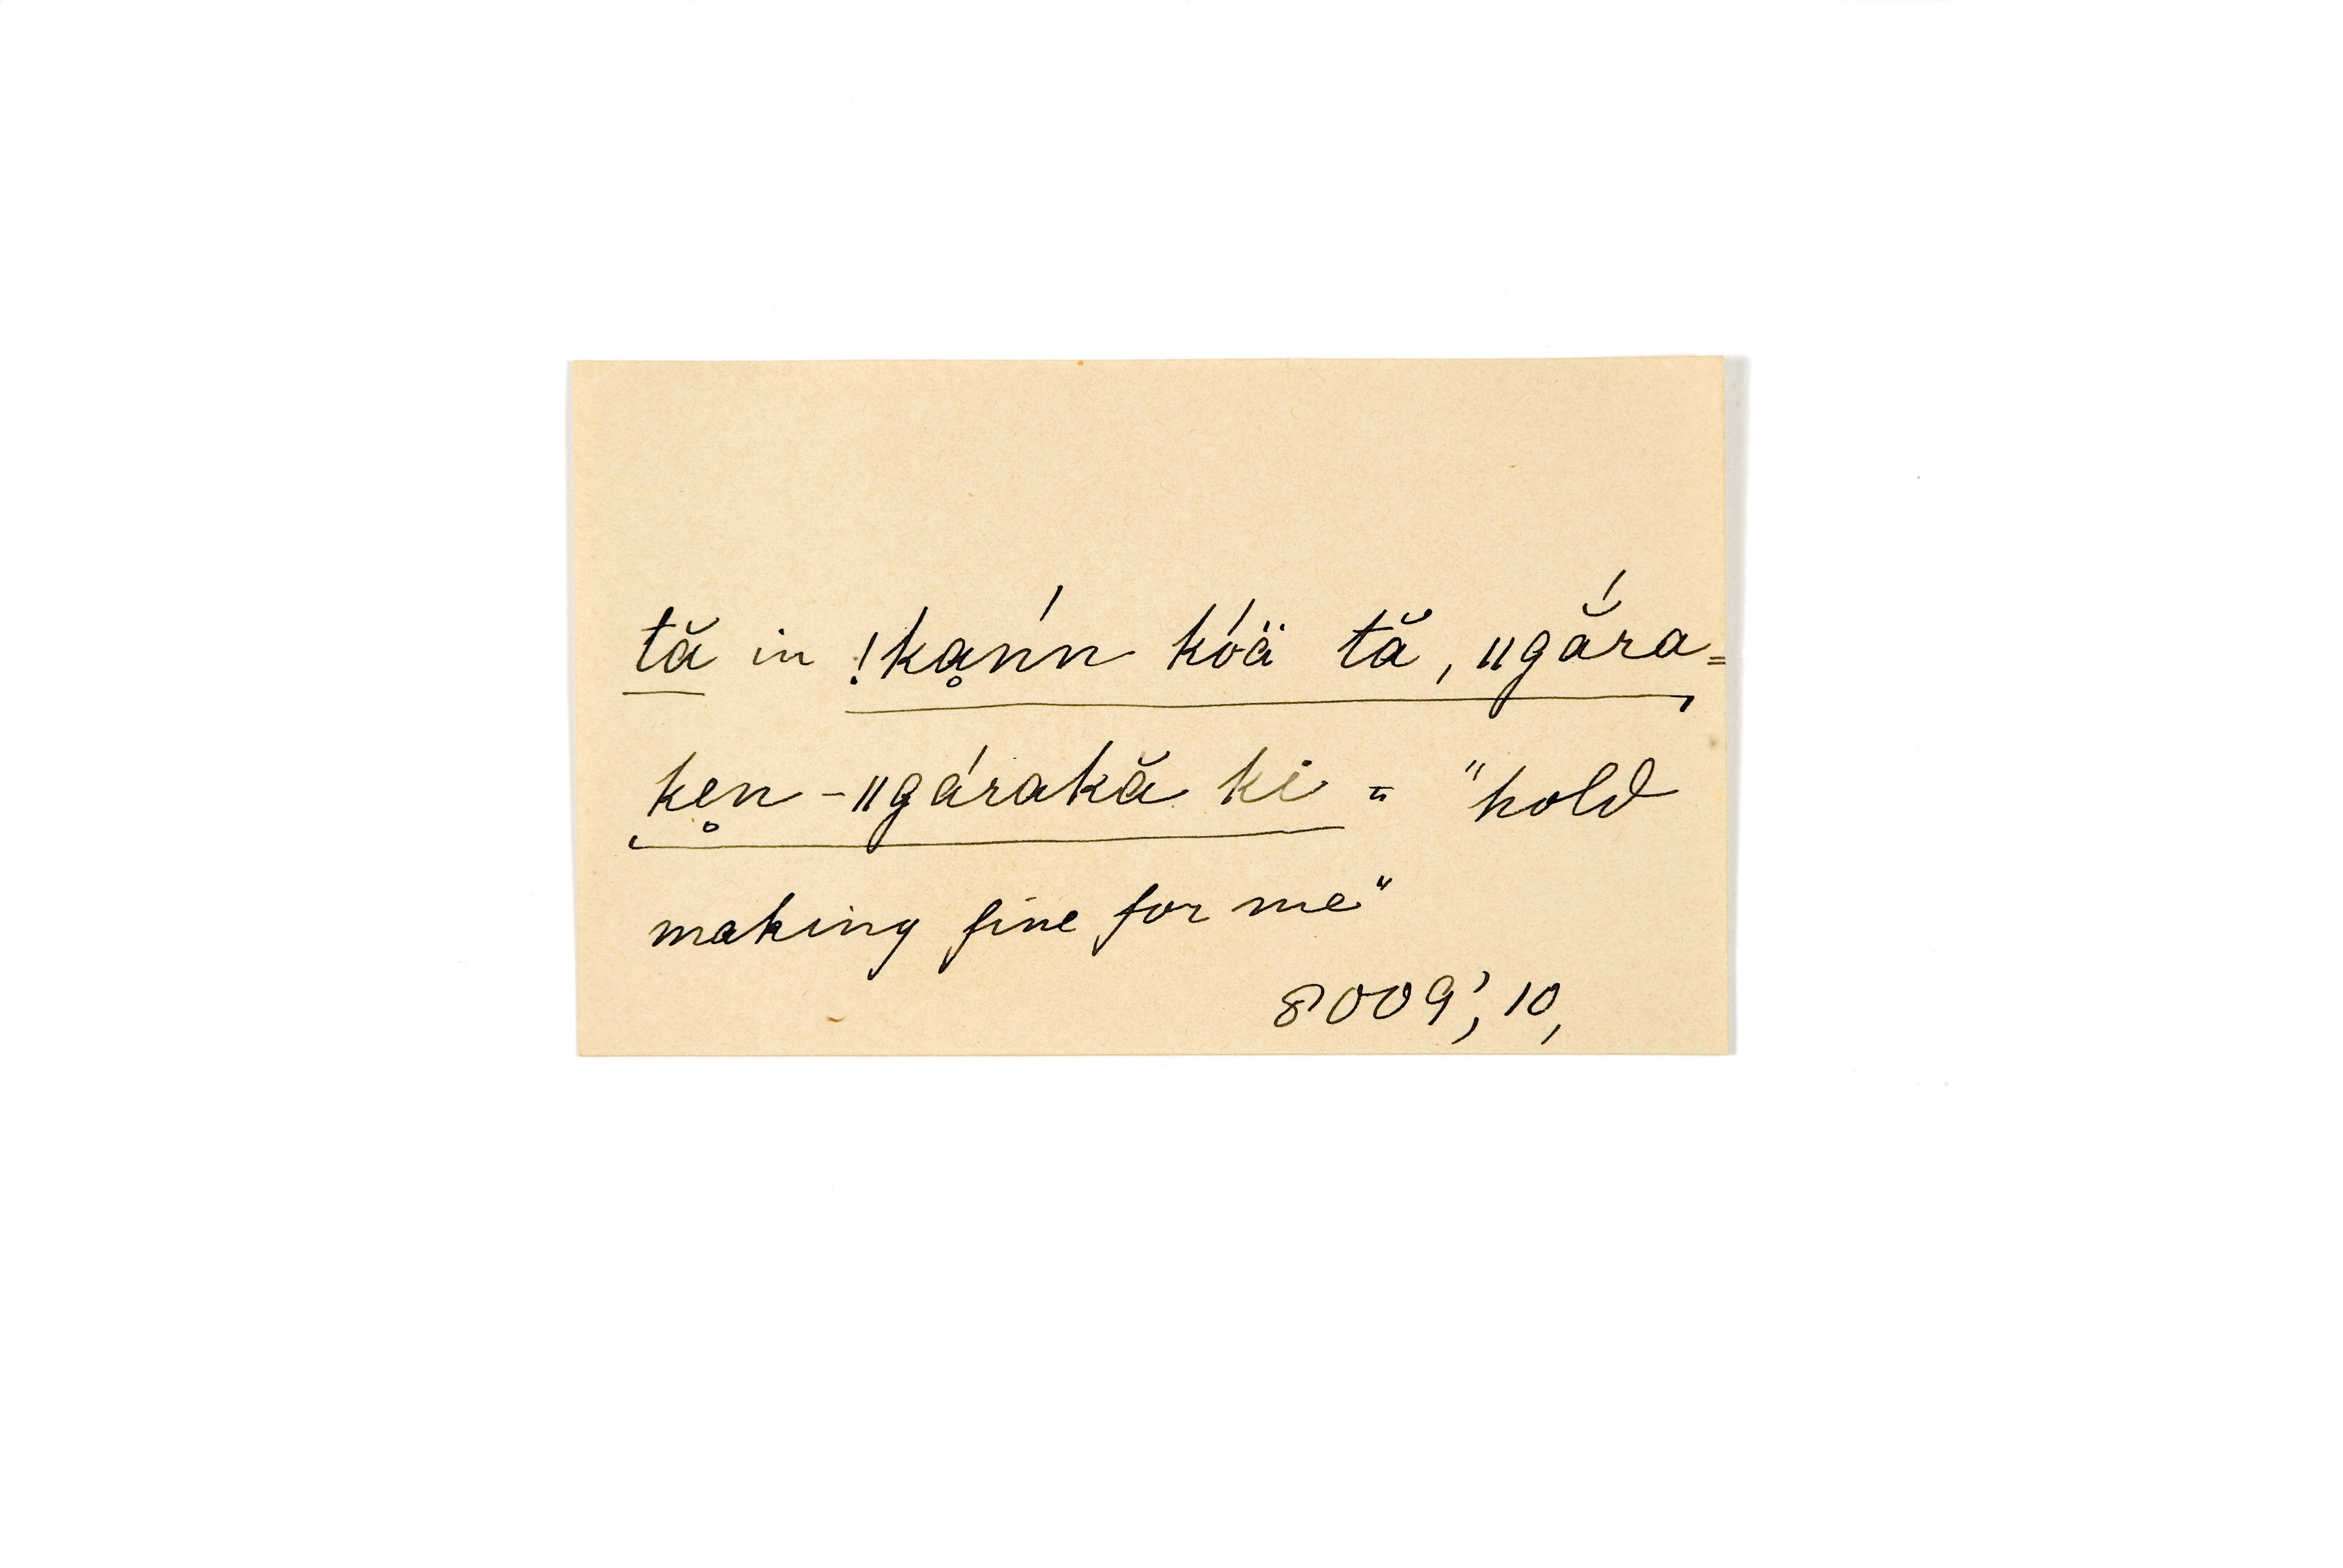 tă in !kḁńn kóä tă, ǁgắra=
ke̥n-ǁgárakă ki = "hold
making fine for me"
8009', 10,